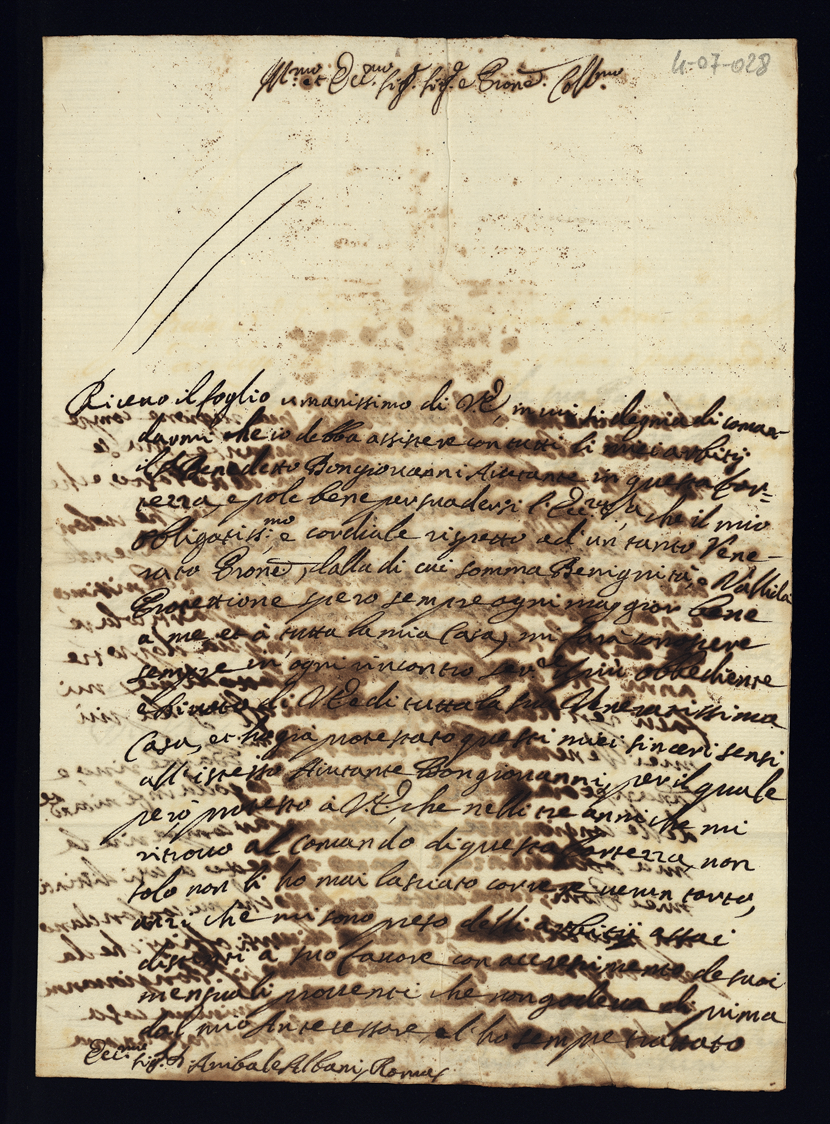 4-07-028
Ill.mo et Ecc.mo Sig.r Sig.r e Prone. Coll.mo
Riceuo il foglio umanissimo di V.E., in cui si degnia di coman-
darmi che io debba assistere con tutti li miei arbitij
il Benedetto Bongiovanni Aiutante in questa For-
tezza, e pole bene persuadersi l'Ecc.za V.a che il mio
obligatiss.mo e cordiale rispetto ad un tanto Vene-
rato Prone., dalla di cui somma Benignità, e Vallida
Protettione spero sempre ogni maggior bene
a me, et à tutta la mia Casa, mi farà conoscere
sempre in ogni rincontro ser.re più obbediente
e di V.E. e di tutta la sua Venerarissima
Casa, et hò già protestato questi miei sinceri sensi
all'istesso Aiutante Bongiovanni, per il quale
però protesto à V.E., che nelli tre anni che mi
ritrouo al Comando di questa Fortezza, non
solo non li ho mai lasciato correre uerun torto,
anzi che mi sono preso delli arbitij assai
disposti a suo fauore con accrescimento de suoi
mensuali prouenti che non godeua di prima
dal mio Antecessore, e l'ho sempre trattato
Ecc.mo Sig.r D. Anibale Albani, Roma